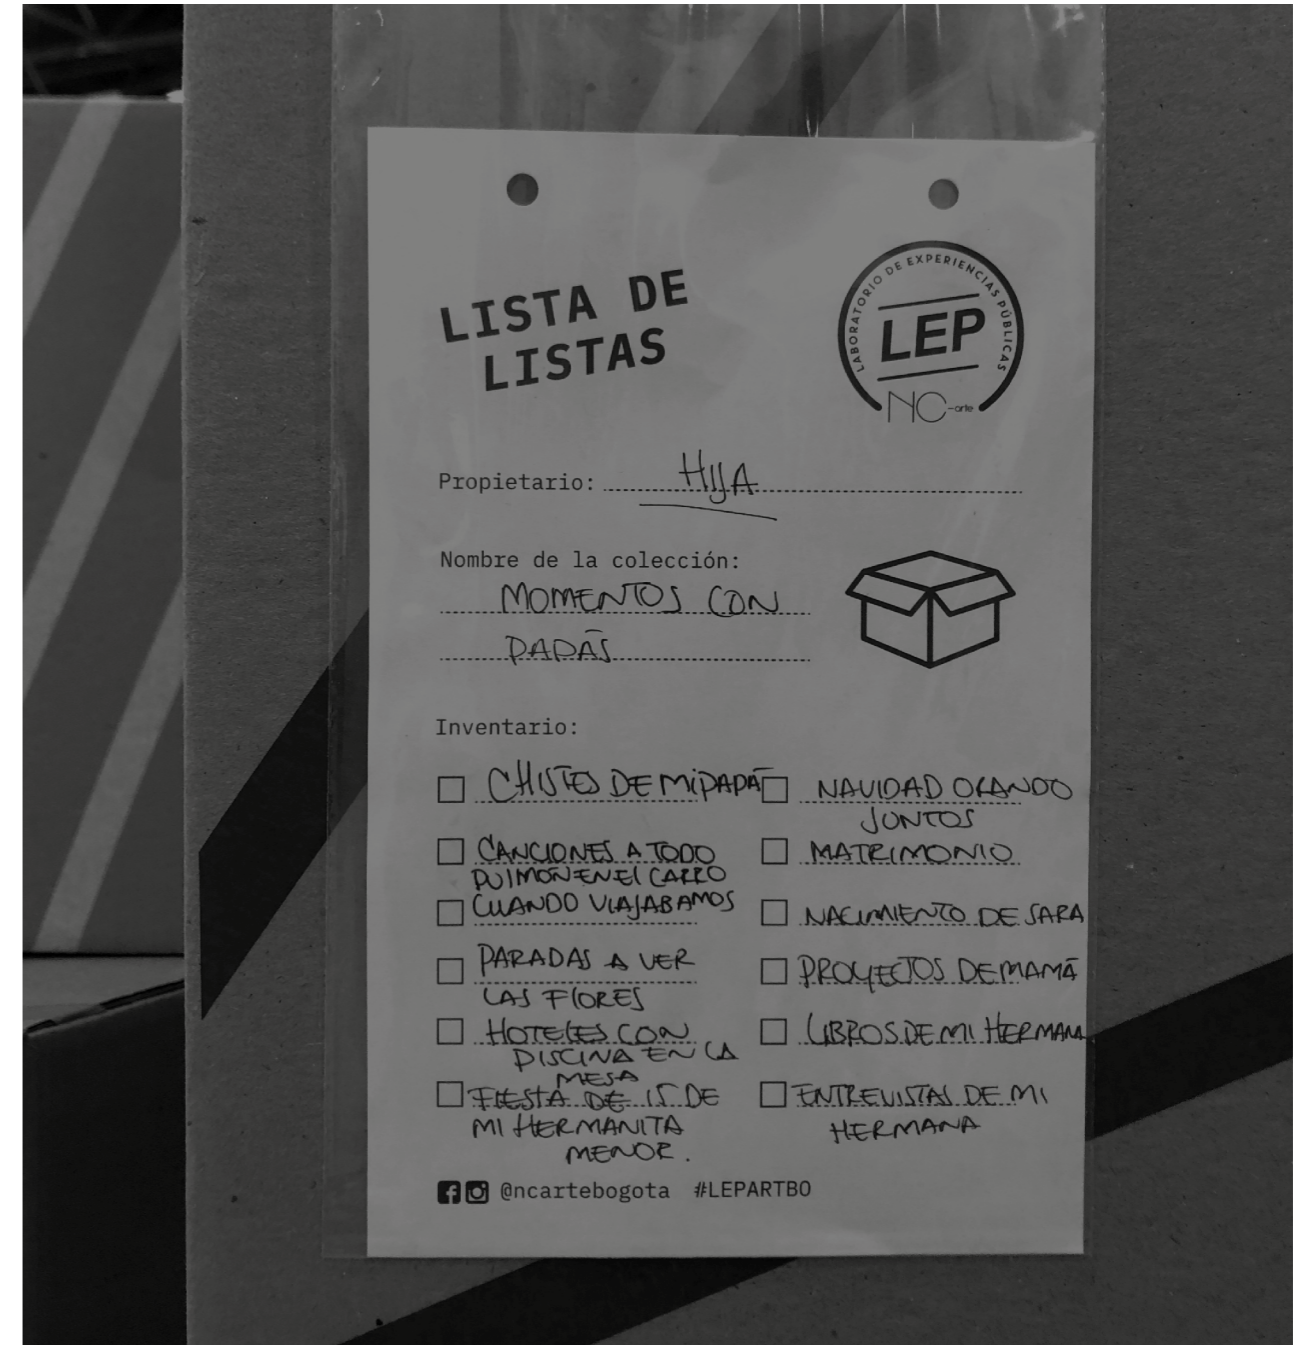 LISTA DE
LISTAS
LABORATORIO DE EXPERIENCIAS PÚBLICAS
LEP
NC-arte
Propietario: HIJA
Nombre de la colección:
MOMENTOS CON
PAPÁS
Inventario:
CHISTES DE MI PAPÁ
CANCIONES A TODO
PULMON EN EL CARRO
CUANDO VIAJABAMOS
PARADAS A VER
LAS FLORES
HOTELES CON
PISCINA EN LA
MESA
FIESTA DE 15 DE
MI HERMANITA
MENOR.
NAVIDAD ORANDO
JUNTOS
MATRIMONIO
NACIMIENTO DE SARA
PROYECTOS DE MAMÁ
LIBROS DE MI HERMANA
ENTREVISTAS DE MI
HERMANA
@ncartebogota #LEPARTBO